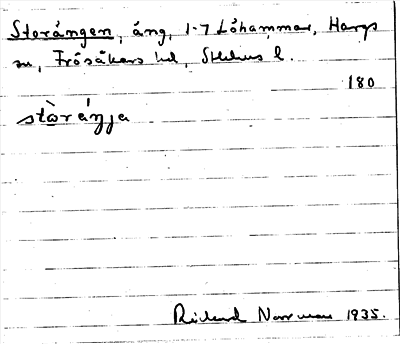 Storängen, äng, 1-7 Löhammar, Hargs
sn, Frösåkers hd, Sthlms l.
180
stòrä́ŋja
Rickard Norrman 1935.